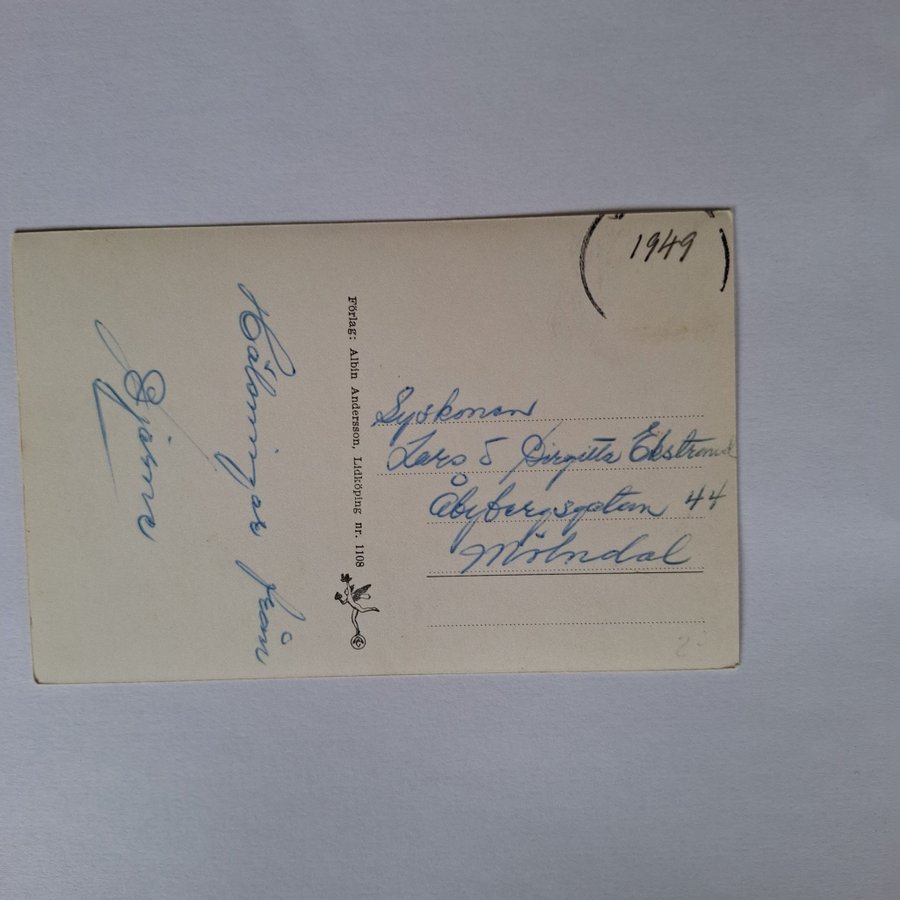 1949
Hälsningar från
Förlag: Albin Andersson, Lidköping nr. 1108
Syskonen
Lars o Birgitta Ekstrand
Åbybergsgatan 44
Mölndal